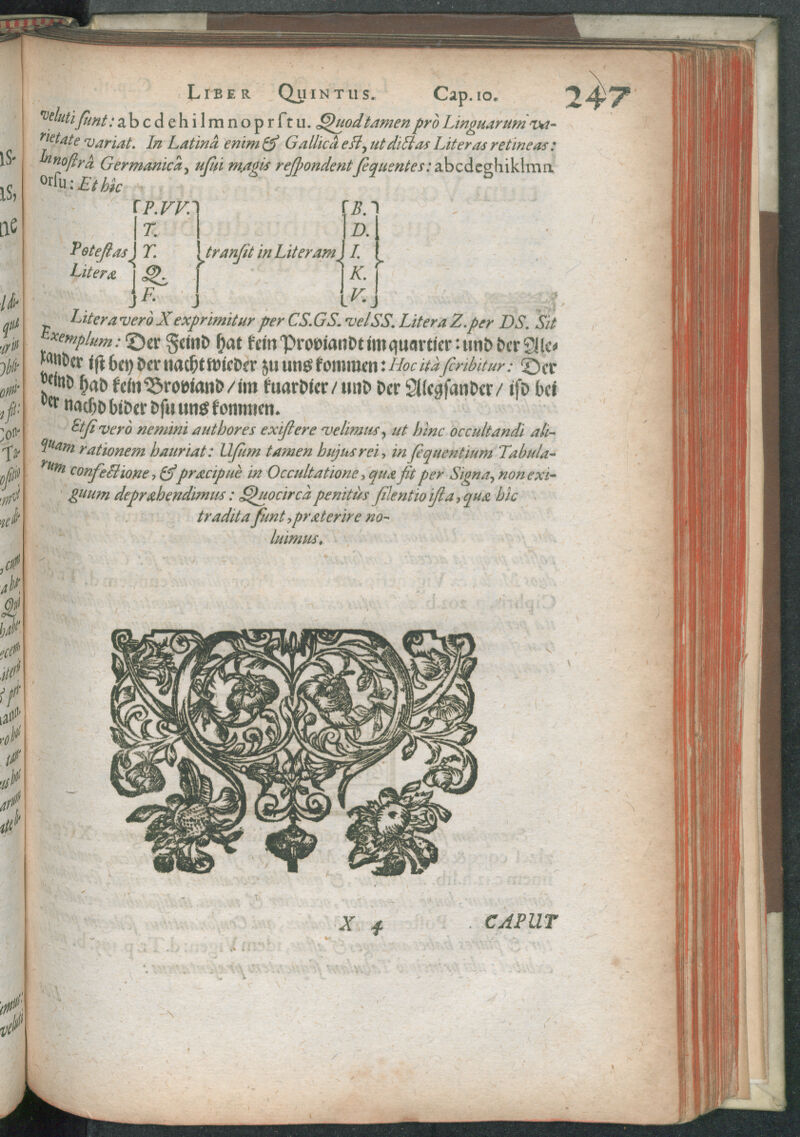 LIBER QUINTUS. Cap. 10. 247
veluti sunt: a b c d e h i l m n o p r ſ t u. Quod tamen prò Linguarum va-
rietate variat. In Latinâ enim & Gallicâ est, ut dictas Literas retineas:
In nostrâ Germanicâ, usui magis respondent sequentes: abcdeghiklmn
orſu: Et hîc
P. VV. B.
T. D.
Potestas Y. transit in Literam I.
Literæ Q. K.
F. V.
Litera verò X exprimitur per CS. GS. vel SS. Litera Z. per DS. Sit
Exemplum: Der Feind hat kein Proviandt im quartier: und der Ale-
xander ist bey der nacht wieder zu uns kommen: Hoc ità scribitur: Der
veind had kein Broviand / im kuardier / und der Alegsander / isd bei
der nachd bider dsu uns kommen.
Etsi verò nemini authores existere velimus, ut hinc occultandi ali-
quam rationem hauriat: Usum tamen hujus rei, in sequentium Tabula-
rum confectione, & præcipuè in Occultatione, quæ fit per Signa, non exi-
guum deprehendimus: Quocircà penitùs silentio ista, quæ hîc
tradita sunt, præterire no-
luimus.
X 4 CAPUT